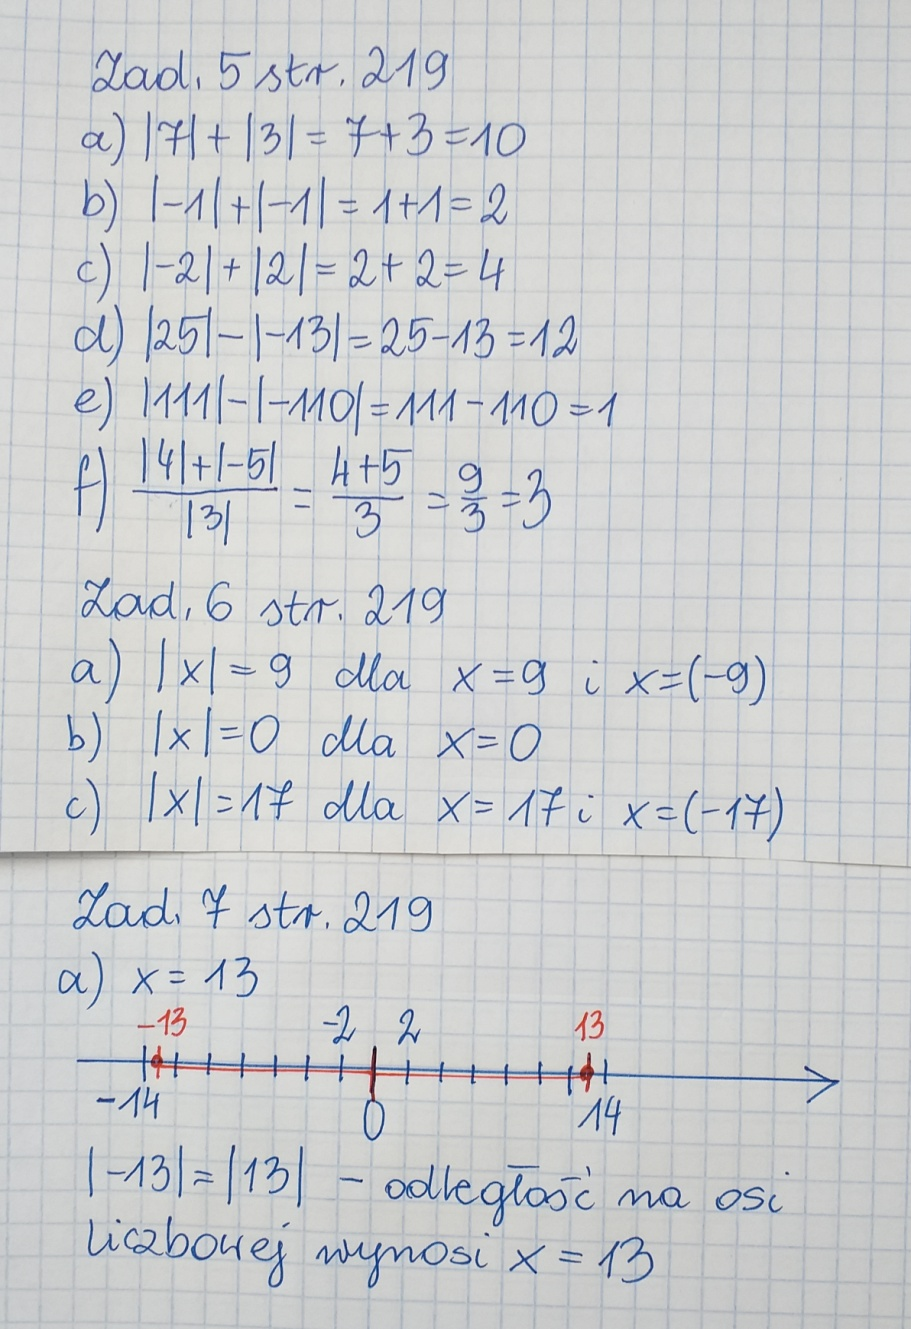 Zad. 5 str. 219
a) |7| + |3| = 7+3 = 10
b) |-1| + |-1| = 1+1 = 2
c) |-2| + |2| = 2+2 = 4
d) |25| - |-13| = 25-13 = 12
e) |111| - |-110| = 111-110 = 1
f) (|4|+|-5|)/|3| = (4+5)/3 = 9/3 = 3
Zad. 6 str. 219
a) |x| = 9 dla x = 9 i x = (-9)
b) |x| = 0 dla x = 0
c) |x| = 17 dla x = 17 i x = (-17)
Zad. 7 str. 219
a) x = 13
-13 -2 2 13
-14 0 14
|-13| = |13| - odległość na osi
liczbowej wynosi x = 13